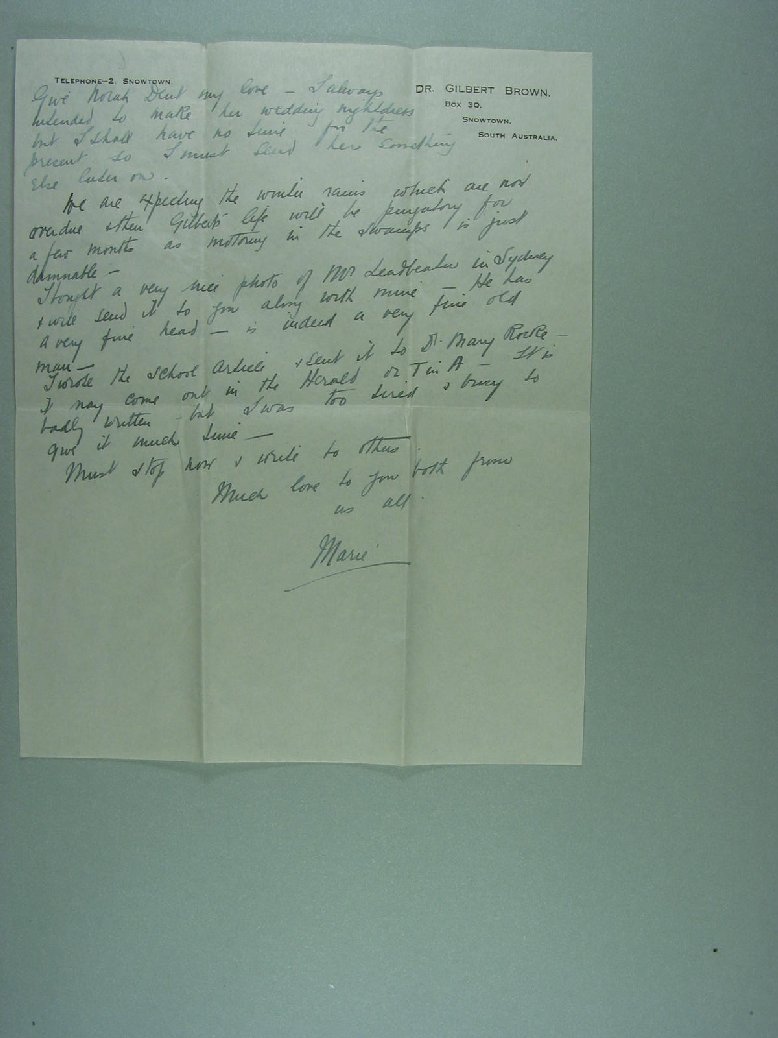 TELEPHONE—2. SNOWTOWN.
DR. GILBERT BROWN.
BOX 30.
SNOWTOWN.
SOUTH AUSTRALIA.
Give Norah Dent my love – I always
intended to make her wedding nightdress
but I shall have no time for the
present so I must send her something
else later on.
We are expecting the winter rains which are now
overdue & then Gilbert's life will be purgatory for
a few months as motoring in the swamps is just
damnable –
I bought a very nice photo of Mr Leadbeater in Sydney
& will send it to you along with mine – He has
a very fine head – is indeed a very fine old
man –
I wrote the school article & sent it to Dr. Mary Rocke –
it may come out in the Herald or T in A – It is
badly written but I was too tired & busy to
give it much time –
Must stop now & write to others.
Much love to you both from
us all.
Marie